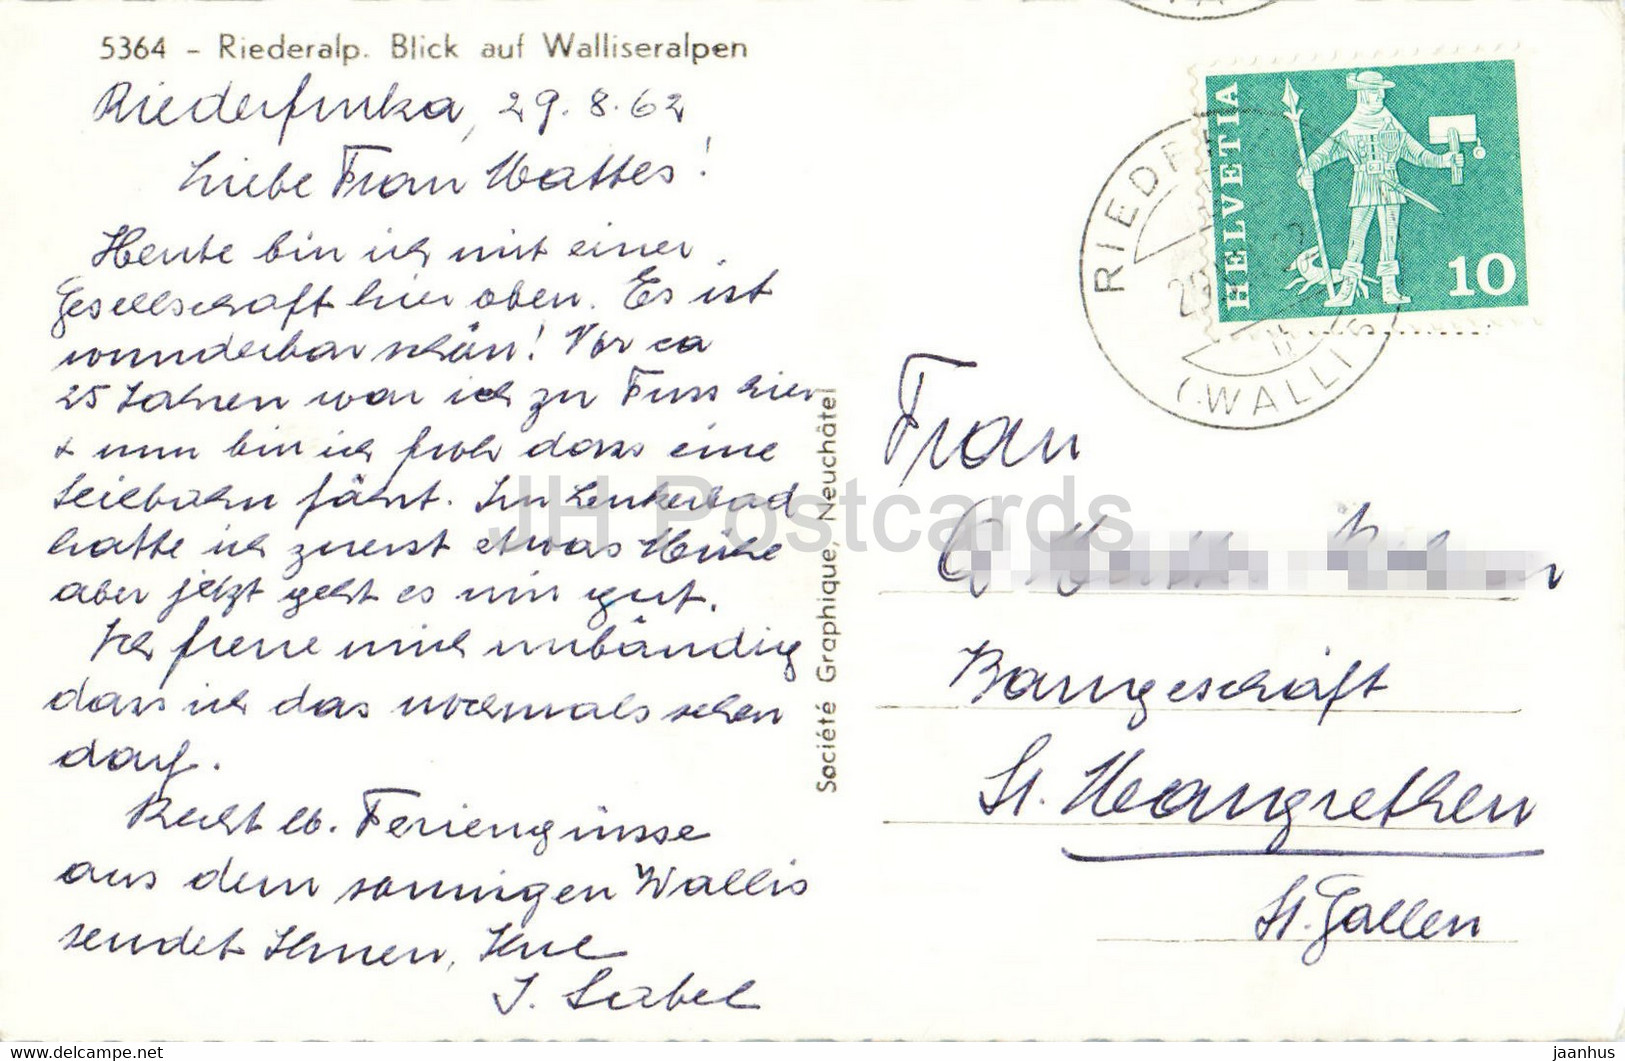 5364 - Riederalp. Blick auf Walliseralpen
Riederfurka, 29.8.62
Liebe Frau Mattes!
Heute bin ich mit einer
Gesellschaft hier oben. Es ist
wunderbar schön! Vor ca
25 Jahren war ich zu Fuss hier
+ nun bin ich froh dass eine
Seilbahn fährt. In Leukerbad
hatte ich zuerst etwas Mühe
aber jetzt geht es mir gut.
Ich freue mich unbändig
dass ich das nochmals sehen
darf.
Recht lb. Feriengrüsse
aus dem sonnigen Wallis
sendet Ihnen, Ihre
J.
Société Graphique, Neuchâtel
HELVETIA
10
(WALLIS)
Frau
Baugeschäft
St. Margrethen
St. Gallen
JH Postcards
www.delcampe.net
jaanhus